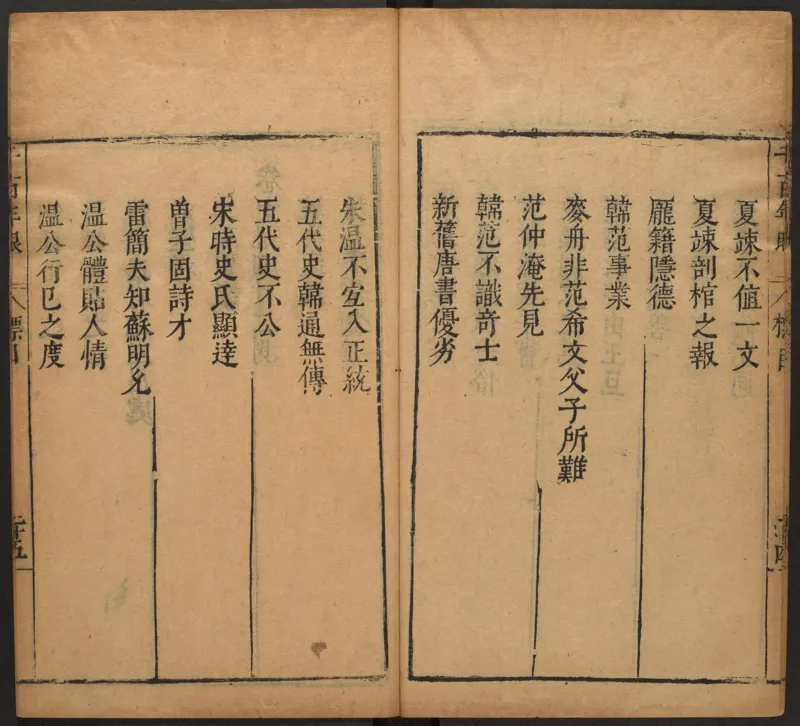 夏竦不值一文
夏竦剖棺之報
龎籍隱德
韓范事業
麥舟非范希文父子所難
范仲淹先見
韓范不識竒士
新舊唐書優劣
朱溫不宜入正統
五代史韓通無傳
五代史不公
宋時史氏顯達
曾子固詩才
雷簡夫知蘇明允
溫公體貼人情
溫公行己之度